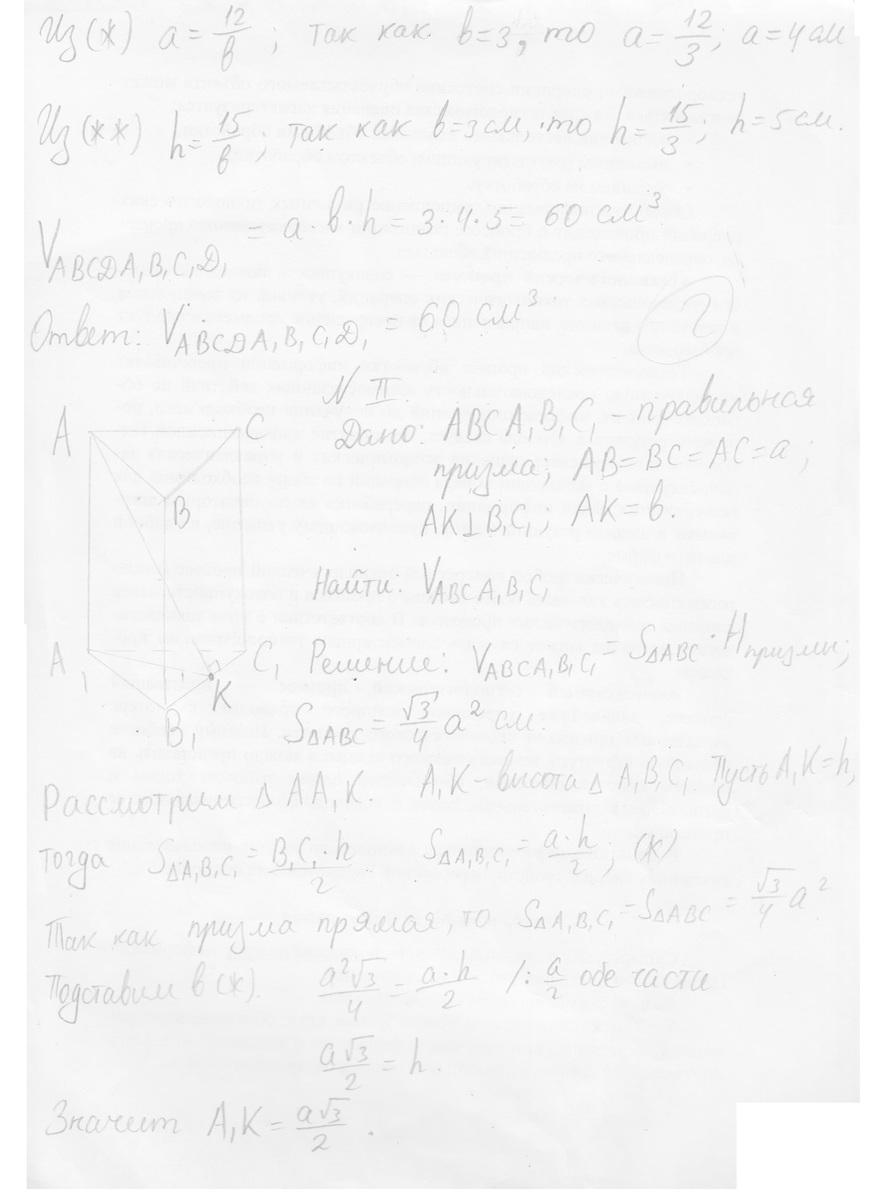 Из (*) a = 12/в ; так как в=3, то a = 12/3; a = 4 см
Из (**) h = 15/в ; так как в=3 см, то h = 15/3; h = 5 см.
V ABCDA₁B₁C₁D₁ = a · в · h = 3 · 4 · 5 = 60 см³
Ответ: V ABCDA₁B₁C₁D₁ = 60 см³
2
N II
Дано: ABCA₁B₁C₁ – правильная
призма; AB = BC = AC = a ;
AK ⊥ B₁C₁ ; AK = в.
Найти: V ABCA₁B₁C₁
A
C
B
A₁
C₁
K
B₁
Решение: V ABCA₁B₁C₁ = S ΔABC · H призмы;
S ΔABC = √3/4 a² см
Рассмотрим Δ AA₁K. A₁K – высота Δ A₁B₁C₁. Пусть A₁K = h,
тогда S ΔA₁B₁C₁ = B₁C₁ · h/2 S ΔA₁B₁C₁ = a · h/2 ; (*)
Так как призма прямая, то S ΔA₁B₁C₁ = S ΔABC = √3/4 a².
Подставим в (*). a²√3/4 = a · h/2 /: a/2 обе части
a√3/2 = h.
Значит A₁K = a√3/2 .